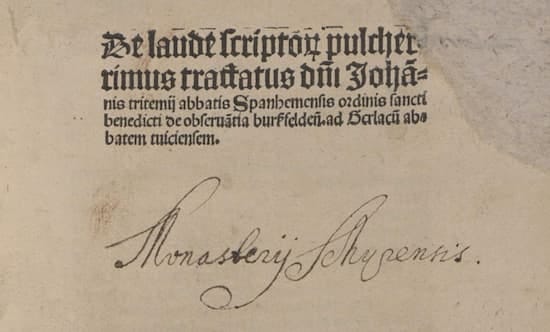 De laudē scriptoꝝ pulcher-
rimus tractatus dn̄i Johā-
nis tritemij abbatis Spanhemensis ordinis sancti
benedicti de obseruātia burſfeldeñ. ad Gerlacū ab-
batem tuiciensem.
Monasterij Schyrensis.